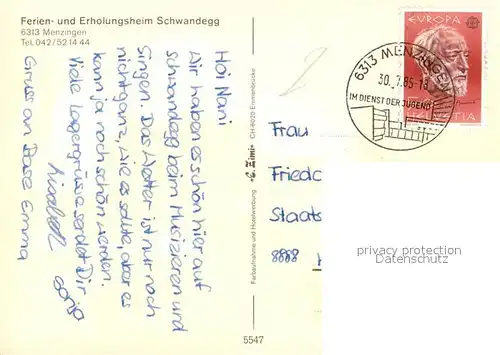 Ferien- und Erholungsheim Schwandegg
6313 Menzingen
Tel. 042/52 14 44
Hoi Nani
Wir haben es schön hier auf
schwandegg beim Musizieren und
Singen. Das Wetter ist nur noch
nicht ganz, wie es sollte, aber es
kann ja noch schön werden.
Viele Lagergrüsse sendet Dir
Gruss an Base Emma
Farbaufnahme und Hotelwerbung
CH-6020 Emmenbrücke
5547
EUROPA
HELVETIA
6313 MENZINGEN
30.7.85-18
IM DIENST DER JUGEND
Frau
Friedr
Staats
8888
privacy protection
Datenschutz